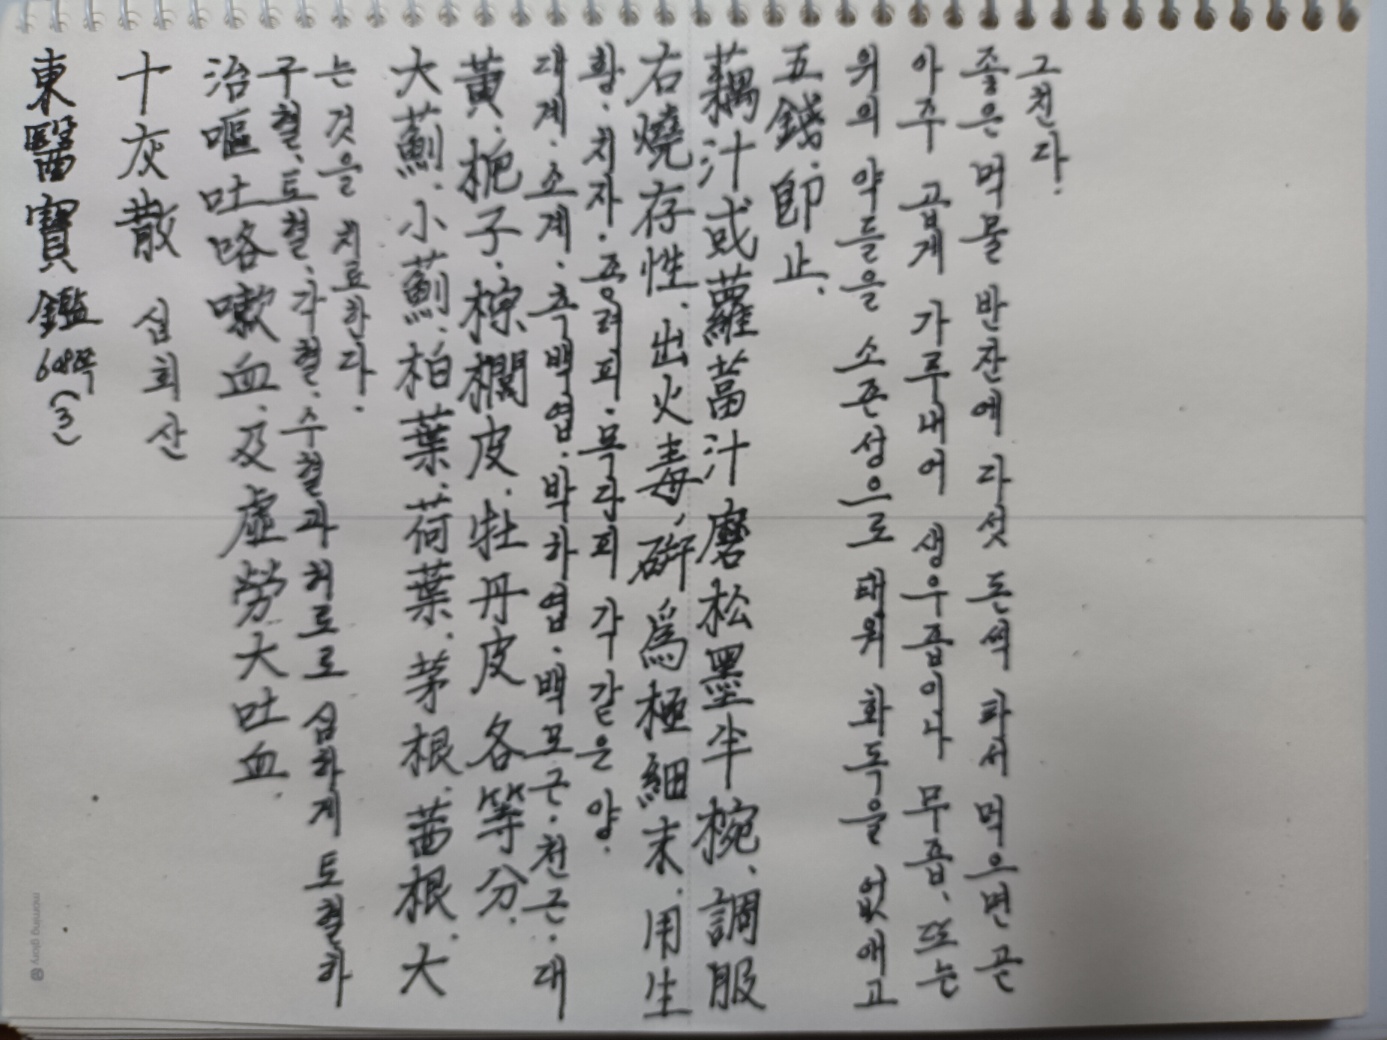 東醫寶鑑 608쪽 (3)
十灰散 십회산
治嘔吐咯嗽血, 及虛勞大吐血.
구혈.토혈.각혈.수혈과 허로로 심하게 토혈하
는 것을 치료한다.
大薊.小薊.柏葉.荷葉.茅根.茜根.大
黃.梔子.棕櫚皮.牡丹皮 各等分.
대계.소계.측백엽.박하엽.백모근.천근.대
황.치자.종려피.목단피 각 같은 양.
右燒存性, 出火毒, 硏爲極細末, 用生
藕汁或蘿葍汁 磨松墨半椀, 調服
五錢, 卽止.
위의 약들을 소존성으로 태워 화독을 없애고
아주 곱게 가루내어 생우즙이나 무즙, 또는
좋은 먹물 반잔에 다섯 돈씩 타서 먹으면 곧
그친다.
morning glory